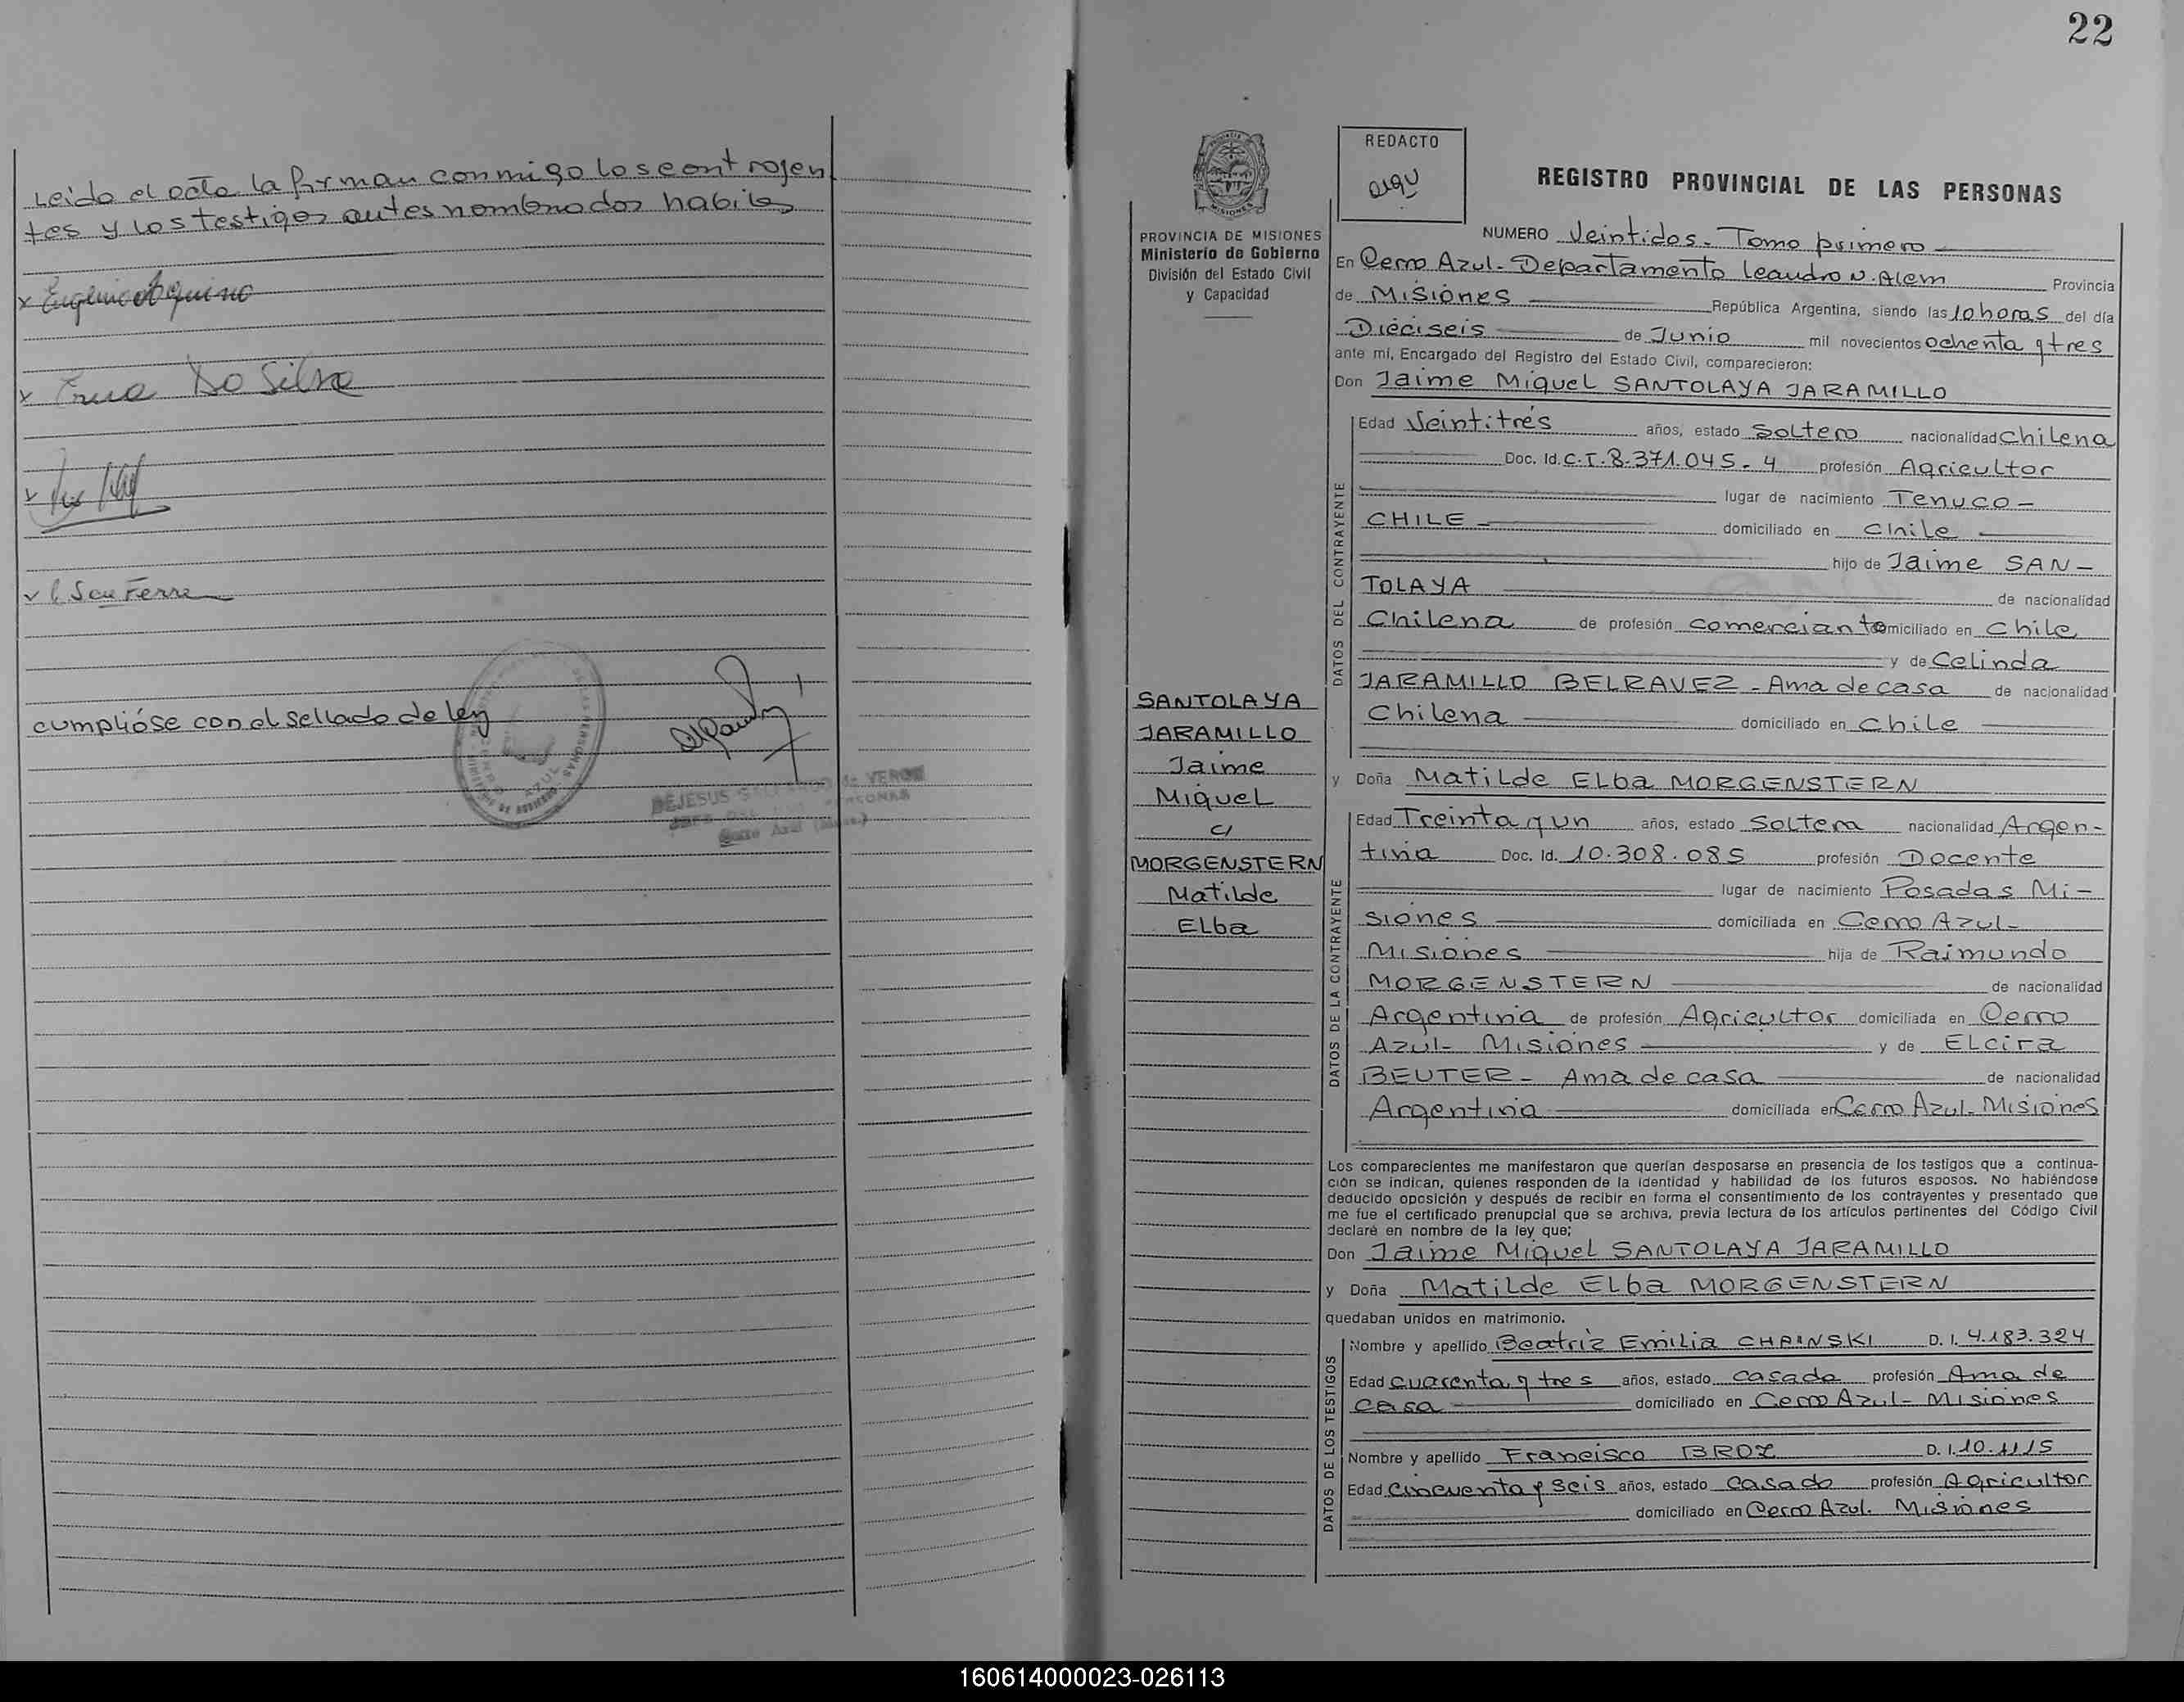 Leido el acta la firman conmigo los contrayen
tes y los testigos antes nombrados habiles
x Eugenio Aquino
x Do Silva
cumplióse con el sellado de ley
22
REDACTO
REGISTRO PROVINCIAL DE LAS PERSONAS
PROVINCIA DE MISIONES
Ministerio de Gobierno
División del Estado Civil
y Capacidad
SANTOLAYA
JARAMILLO
Jaime
Miguel
c/
MORGENSTERN
Matilde
Elba
NUMERO Veintidos - Tomo primero
En Cerro Azul - Departamento Leandro N. Alem Provincia
de Misiones República Argentina, siendo las 10 horas del día
Dieciseis de Junio mil novecientos ochenta y tres
ante mí, Encargado del Registro del Estado Civil, comparecieron:
Don Jaime Miguel SANTOLAYA JARAMILLO
DATOS DEL CONTRAYENTE
Edad Veintitrés años, estado Soltero nacionalidad Chilena
Doc. Id. C.I. 8.371.045-4 profesión Agricultor
lugar de nacimiento Temuco -
CHILE - domiciliado en Chile
hijo de Jaime SAN-
TOLAYA de nacionalidad
Chilena de profesión comerciante domiciliado en Chile
y de Celinda
JARAMILLO BELRAVEZ - Ama de casa de nacionalidad
Chilena domiciliado en Chile
y Doña Matilde Elba MORGENSTERN
DATOS DE LA CONTRAYENTE
Edad Treinta y un años, estado Soltera nacionalidad Argen-
tina Doc. Id. 10.308.085 profesión Docente
lugar de nacimiento Posadas Mi-
siones domiciliada en Cerro Azul -
Misiones hija de Raimundo
MORGENSTERN de nacionalidad
Argentina de profesión Agricultor domiciliada en Cerro
Azul - Misiones y de Elcira
BEUTER - Ama de casa de nacionalidad
Argentina domiciliada en Cerro Azul - Misiones
Los comparecientes me manifestaron que querían desposarse en presencia de los testigos que a continua-
ción se indican, quienes responden de la identidad y habilidad de los futuros esposos. No habiéndose
deducido oposición y después de recibir en forma el consentimiento de los contrayentes y presentado que
me fue el certificado prenupcial que se archiva, previa lectura de los artículos pertinentes del Código Civil
declaré en nombre de la ley que;
Don Jaime Miguel SANTOLAYA JARAMILLO
y Doña Matilde Elba MORGENSTERN
quedaban unidos en matrimonio.
DATOS DE LOS TESTIGOS
Nombre y apellido Beatriz Emilia D. I. 4.183.324
Edad cuarenta y tres años, estado casada profesión Ama de
casa domiciliado en Cerro Azul - Misiones
Nombre y apellido Francisco BROZ D. I. 10.1115
Edad Cincuenta y seis años, estado casado profesión Agricultor
domiciliado en Cerro Azul. Misiones
160614000023-026113